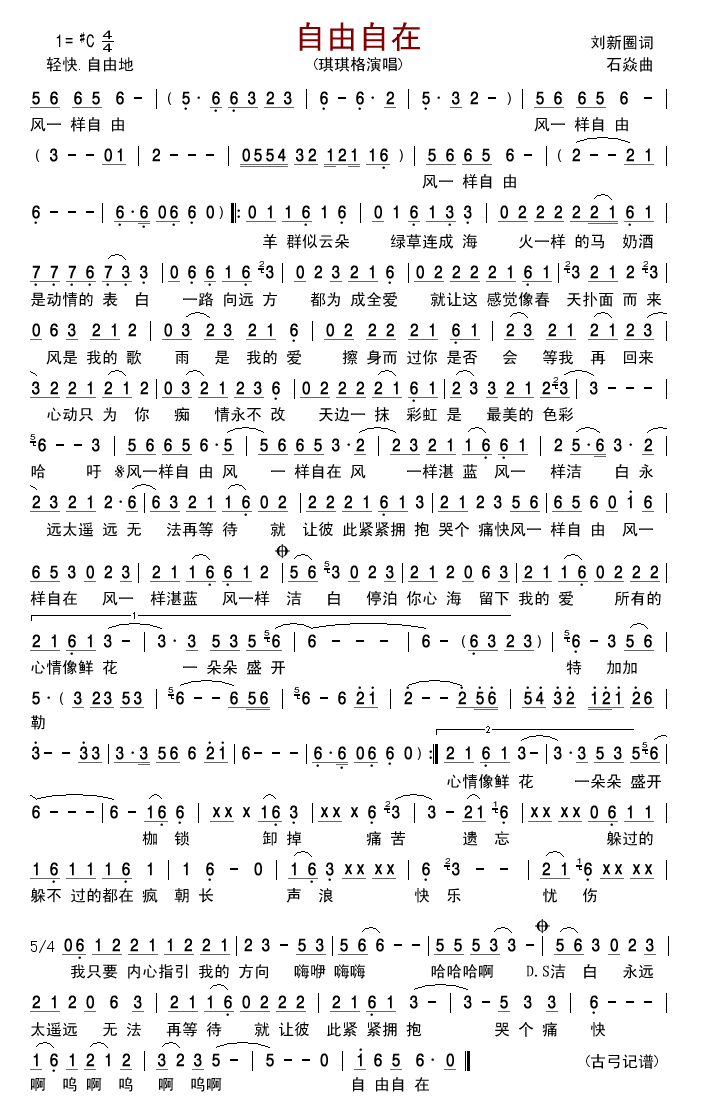 自由自在
1= #C 4/4
刘新圈词
轻快.自由地
(琪琪格演唱)
石焱曲
5 6 6 5 6 - | ( 5 · 6 6 3 2 3 | 6 - 6 · 2 | 5 · 3 2 - ) | 5 6 6 5 6 - |
风一 样自 由 风一 样自 由
( 3 - - 0 1 | 2 - - - | 0 5 5 4 3 2 1 2 1 1 6 ) | 5 6 6 5 6 - | ( 2 - - 2 1 |
风一 样自 由
6 - - - | 6 · 6 0 6 6 0 ) ‖: 0 1 1 6 1 6 | 0 1 6 1 3 3 | 0 2 2 2 2 2 1 6 1 |
羊 群似云朵 绿草连成 海 火一样 的马 奶酒
7 7 7 6 7 3 3 | 0 6 6 1 6 2 3 0 | 0 2 3 2 1 6 | 0 2 2 2 2 1 6 1 | 2 3 3 2 1 2 2 3 3 |
是动情的 表 白 一路 向远 方 都为 成全爱 就让这 感觉像春 天扑面 而 来
0 6 3 2 1 2 | 0 3 2 3 2 1 6 | 0 2 2 2 2 1 6 1 | 2 3 2 1 2 1 2 3 |
风是 我的 歌 雨 是 我的 爱 擦 身而 过你 是否 会 等我 再 回来
3 2 2 1 2 1 2 | 0 3 2 1 2 3 6 | 0 2 2 2 2 1 6 1 | 2 3 3 2 1 2 2 3 3 | 3 - - - |
心动只 为 你 痴 情永不 改 天边一 抹 彩虹 是 最美的 色彩
5 6 - - 3 | 5 6 6 5 6 · 5 | 5 6 6 5 3 · 2 | 2 3 2 1 1 6 6 1 | 2 5 · 6 3 · 2 |
哈 吁 𝄋风一样自 由 风 一 样自在 风 一样湛 蓝 风一 样洁 白 永
2 3 2 1 2 · 6 | 6 3 2 1 1 6 0 2 | 2 2 2 1 6 1 3 | 2 1 2 3 5 6 | 6 5 6 0 1 6 |
远太遥 远 无 法再等 待 就 让彼 此紧紧拥 抱 哭个 痛快风一 样自 由 风一
6 5 3 0 2 3 | 2 1 1 6 6 1 2 | 5 6 5 3 0 2 3 | 2 1 2 0 6 3 | 2 1 1 6 0 2 2 2 |
样自在 风一 样湛蓝 风一样 洁 白 停泊 你心 海 留下 我的 爱 所有的
1
2 1 6 1 3 - | 3 · 3 5 3 5 5 6 | 6 - - - | 6 - ( 6 3 2 3 ) | 5 6 - 3 5 6 |
心情像鲜 花 一 朵朵 盛 开 特 加加
5 · ( 3 2 3 5 3 | 5 6 - - 6 5 6 | 5 6 - 6 2 1 | 2 - - 2 5 6 | 5 4 3 2 1 2 1 2 6 |
勒
3 - - 3 3 | 3 · 3 5 6 6 2 1 | 6 - - - | 6 · 6 0 6 6 0 ) :‖ 2 1 6 1 3 - | 3 · 3 5 3 5 5 6 |
2
心情像鲜 花 一朵朵 盛开
6 - - - | 6 - 1 6 6 | x x x 1 6 3 | x x x 6 2 3 3 | 3 - 2 1 1 6 | x x x x 0 6 1 1 |
枷 锁 卸 掉 痛 苦 遗 忘 躲过的
1 6 1 1 1 6 1 | 1 6 - 0 | 1 6 3 x x x x | 6 2 3 - - | 2 1 1 6 x x x x |
躲不 过的都在 疯 朝 长 声 浪 快 乐 忧 伤
5/4 0 6 1 2 2 1 1 2 2 1 | 2 3 - 5 3 | 5 6 6 - | 5 5 5 3 3 - | 5 6 3 0 2 3 |
我只要 内心指引 我的 方向 嗨咿 嗨嗨 哈哈哈啊 D.S洁 白 永远
2 1 2 0 6 3 | 2 1 1 6 0 2 2 2 | 2 1 6 1 3 - | 3 - 5 3 5 | 6 - - - |
太遥远 无 法 再等 待 就 让彼 此紧 紧拥 抱 哭 个 痛 快
1 6 1 2 1 2 | 3 2 3 5 - | 5 - 0 | 1 6 5 6 · 0 ‖
(古弓记谱)
啊 呜 啊 呜 啊 呜啊 自 由自 在